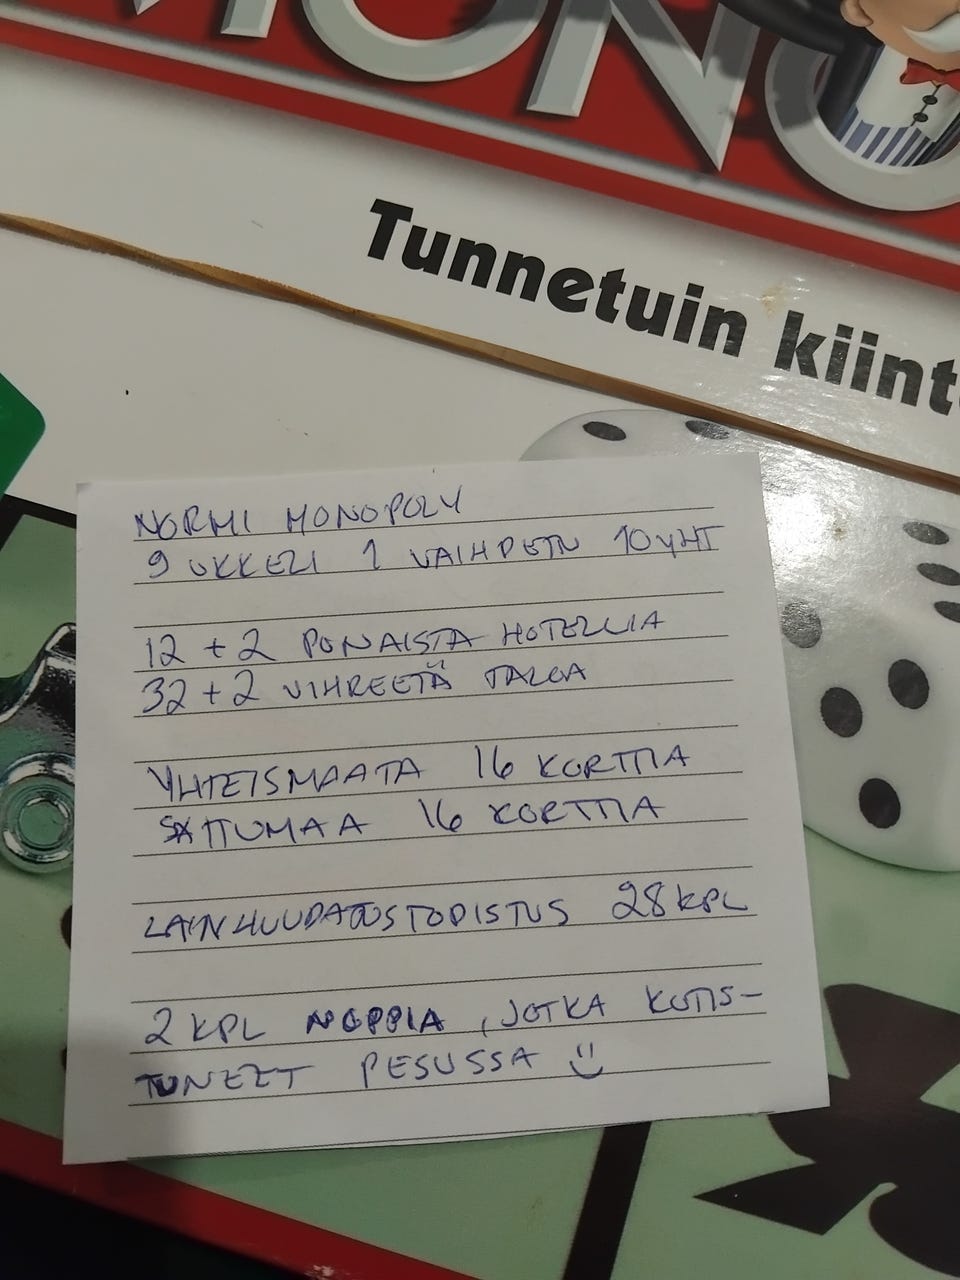 MONO
Tunnetuin kiint
NORMI MONOPOLY
9 UKKELI 1 VAIHDETN 10 YHT
12 + 2 PUNAISTA HOTELLIA
32 + 2 VIHREETÄ TALOA
YHTEISMAATA 16 KORTTIA
SATTUMAA 16 KORTTIA
LAINHUUDATUSTODISTUS 28 KPL
2 KPL NOPPIA, JOTKA KUTIS-
TUNEET PESUSSA